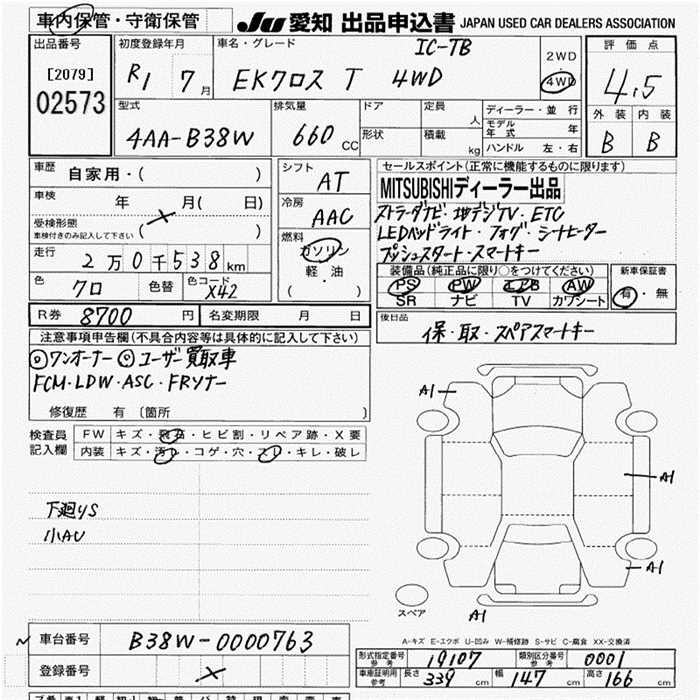 車内保管・守衛保管
JU 愛知 出品申込書 JAPAN USED CAR DEALERS ASSOCIATION
出品番号 [2079] 02573
初度登録年月 R1 7月
車名・グレード IC-TB
EKクロス T 4WD
2WD・4WD
評価点 4.5
外装 内装
B B
型式 4AA-B38W
排気量 660 CC
ドア 定員 人
形状 積載 kg
ディーラー・並行
モデル年式 年
ハンドル 左・右
車歴 自家用・( )
車検 年 月( 日)
受検形態 車検付きのみ記入して下さい ( )
走行 2万0千538km
色 クロ 色替 色コード X42
シフト AT
冷房 AAC
燃料 ガソリン
軽・油
( )
セールスポイント(正常に機能するものに限ります)
MITSUBISHIディーラー出品
ストラーダナビ・地デジTV・ETC
LEDヘッドライト・フォグ・シートヒーター
プッシュスタート・スマートキー
装備品(純正品に限り○をつけてください)
PS PW エアB AW
SR ナビ TV カワシート
新車保証書
有・無
R券 8700円 名変期限 月 日
後日品 保・取・スペアスマートキー
注意事項申告欄(不具合内容等は具体的に記入して下さい)
◎ワンオーナー ◎ユーザー買取車
FCM・LDW・ASC・FRソナー
修復歴 有〔箇所 〕
検査員記入欄
FW キズ・飛石・ヒビ割・リペア跡・X要
内装 キズ・汚レ・コゲ・穴・スレ・キレ・破レ
下廻りS
小AU
A1
A1
A1
A1
スペア
A-キズ E-エクボ U-凹み W-補修跡 S-サビ C-腐食 XX-交換済
車台番号 B38W-0000763
登録番号
形式指定番号 参考 19107 類別区分番号 参考 0001
車庫証明用 参考 長さ 339cm 幅 147cm 高さ 166cm